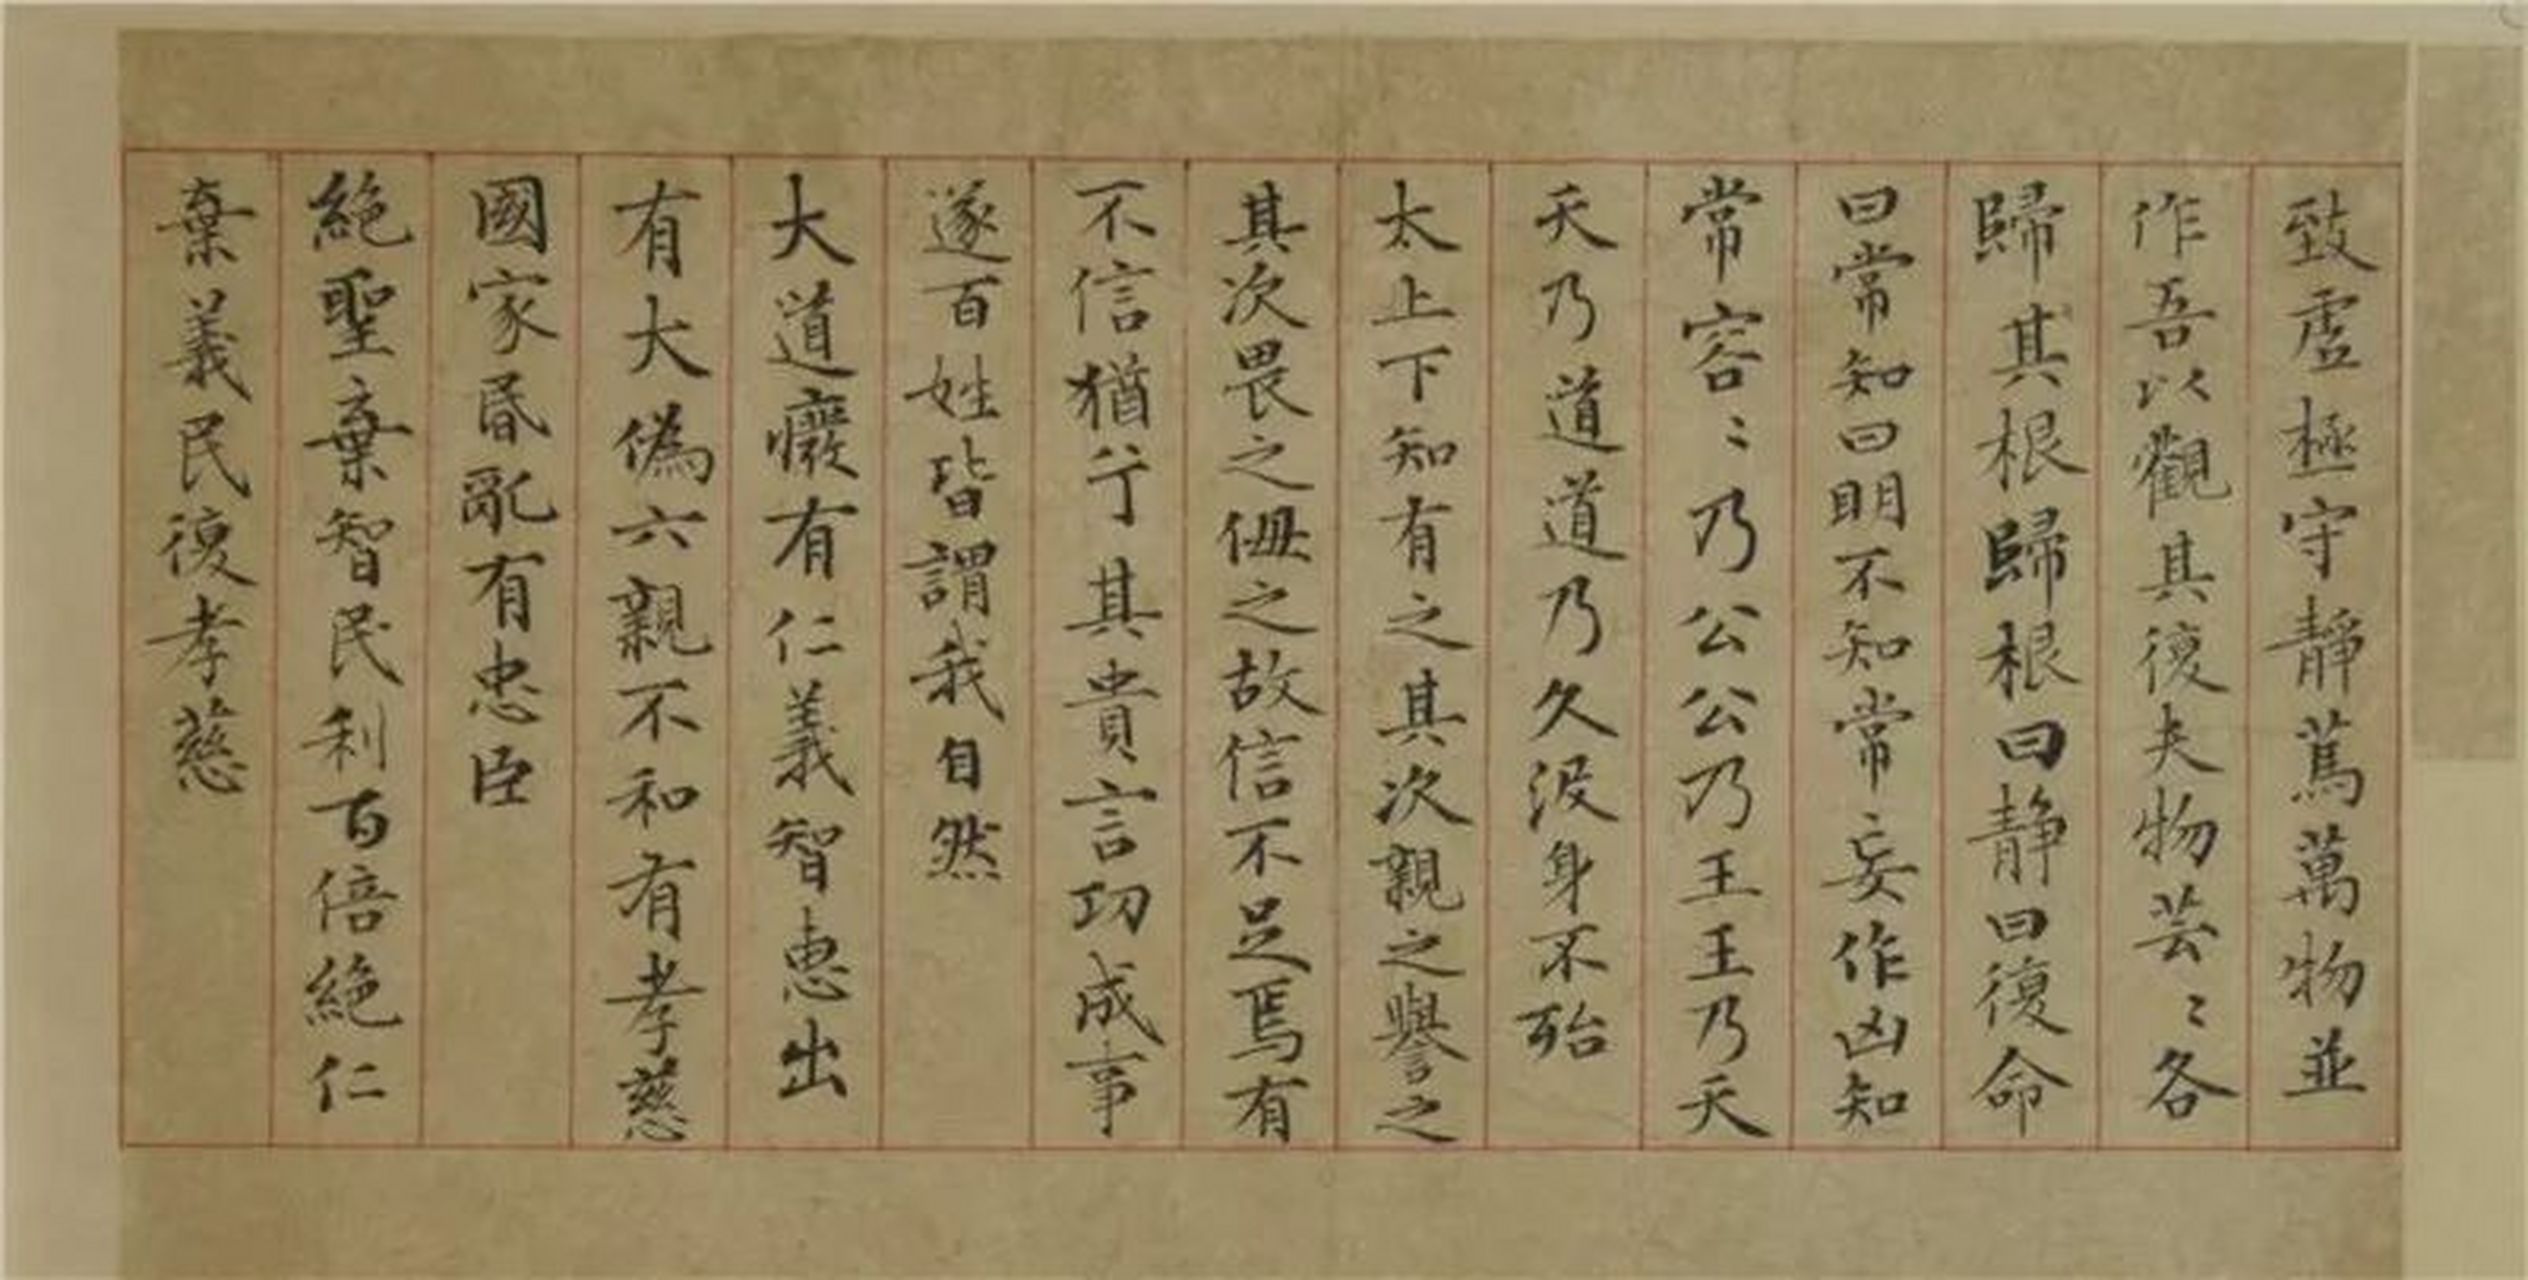 致虛極守靜篤萬物並
作吾以觀其復夫物芸〻各
歸其根歸根曰靜曰復命
曰常知曰明不知常妄作凶知
常容〻乃公公乃王王乃天
天乃道道乃久沒身不殆
太上下知有之其次親之譽之
其次畏之侮之故信不足焉有
不信猶兮其貴言功成事
遂百姓皆謂我自然
大道廢有仁義智惠出
有大偽六親不和有孝慈
國家昏亂有忠臣
絕聖棄智民利百倍絕仁
棄義民復孝慈